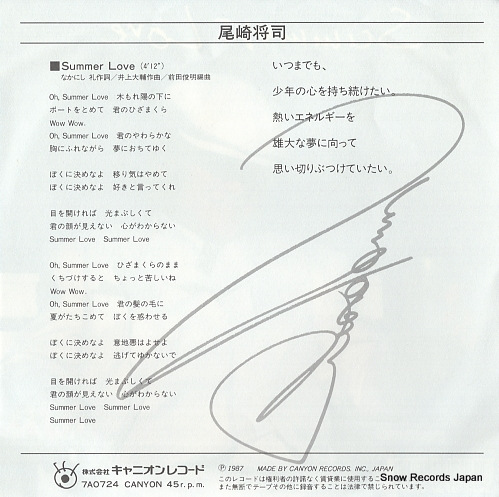 尾崎将司
■Summer Love (4'12")
なかにし 礼作詞／井上大輔作曲／前田俊明編曲
Oh, Summer Love 木もれ陽の下に
ボートをとめて 君のひざまくら
Wow Wow.
Oh, Summer Love 君のやわらかな
胸にふれながら 夢におちてゆく
ぼくに決めなよ 移り気はやめて
ぼくに決めなよ 好きと言ってくれ
目を開ければ 光まぶしくて
君の顔が見えない 心がわからない
Summer Love Summer Love
Oh, Summer Love ひざまくらのまま
くちづけすると ちょっと苦しいね
Wow Wow.
Oh, Summer Love 君の髪の毛に
夏がたちこめて ぼくを惑わせる
ぼくに決めなよ 意地悪はよせよ
ぼくに決めなよ 逃げてゆかないで
目を開ければ 光まぶしくて
君の顔が見えない 心がわからない
Summer Love Summer Love
Summer Love
いつまでも、
少年の心を持ち続けたい。
熱いエネルギーを
雄大な夢に向って
思い切りぶつけていたい。
株式会社キャニオンレコード
7A0724 CANYON 45r.p.m.
Ⓟ 1987 MADE BY CANYON RECORDS, INC., JAPAN
このレコードは権利者の許諾なく賃貸業に使用すること
また無断でテープその他に録音することは法律で禁じられています。
Snow Records Japan